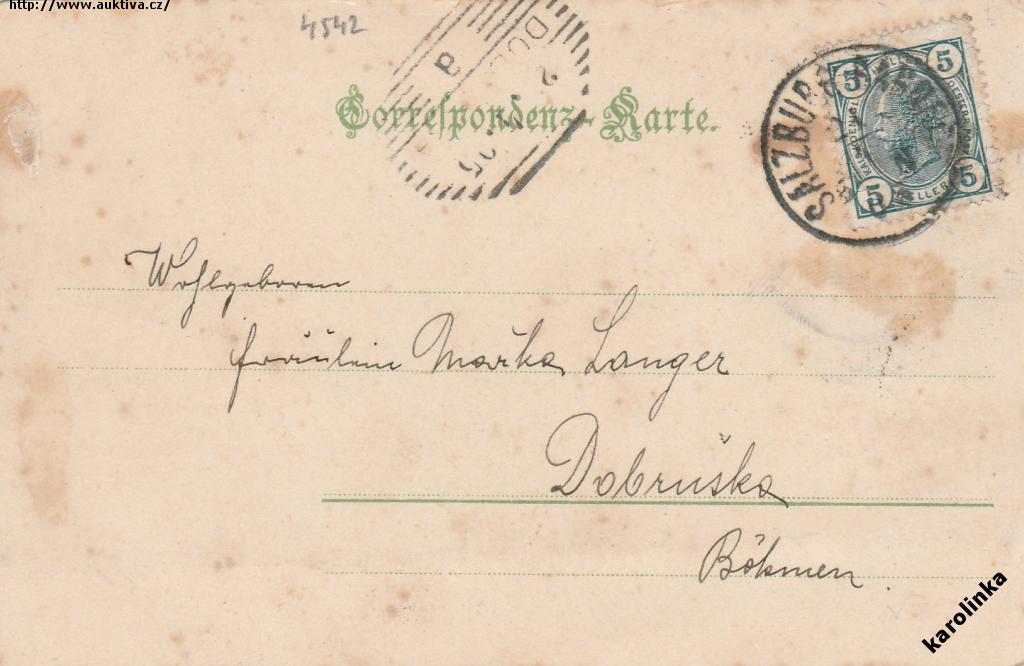 http://www.auktiva.cz/
4542
Correspondenz-Karte.
SALZBURG
5 5
5 5
HELLER
Wohlgeboren
Fräulein Mařka Langer
Dobruška
Böhmen
karolinka